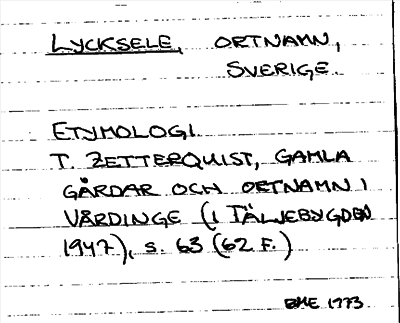 LYCKSELE, ORTNAMN,
SVERIGE.
ETYMOLOGI.
T. ZETTERQUIST, GAMLA
GÅRDAR OCH ORTNAMN I
VÅRDINGE (I TÄLJEBYGDEN
1947), S. 63 (62 F.)
BME 1773